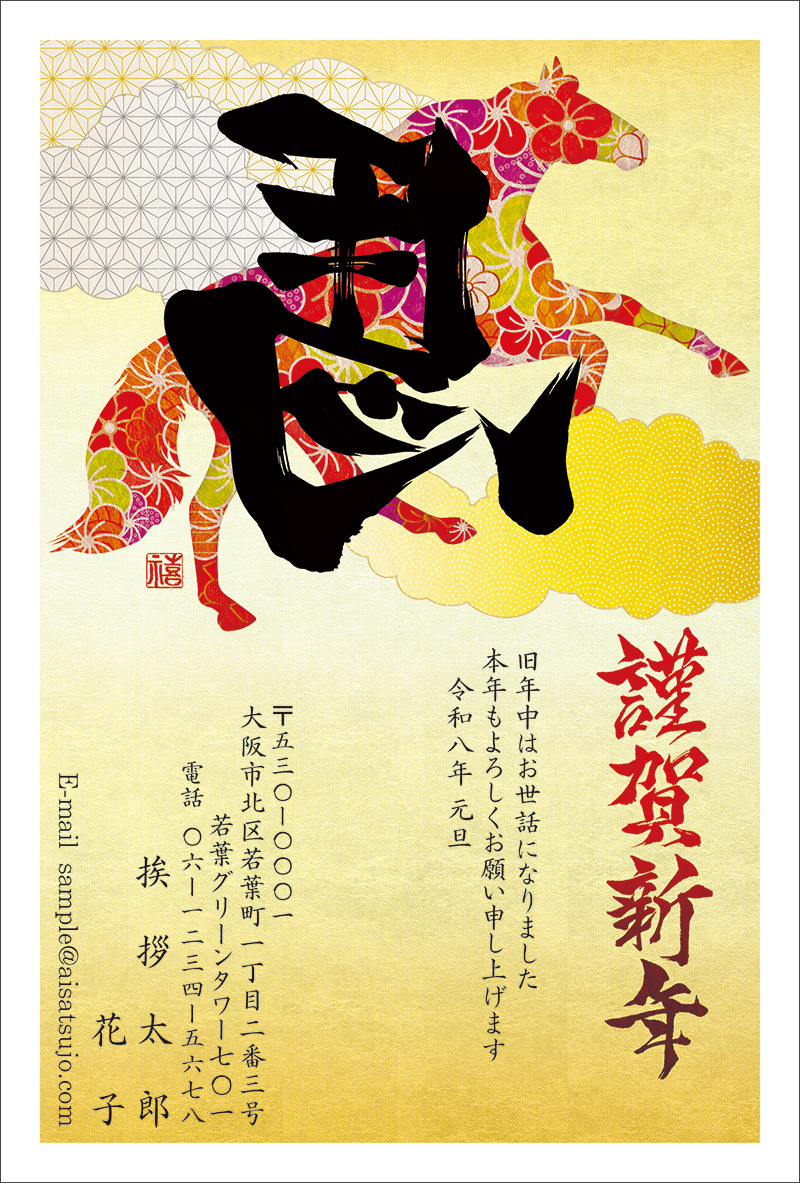 馬
禧
謹賀新年
旧年中はお世話になりました
本年もよろしくお願い申し上げます
令和八年 元旦
〒五三〇ー〇〇〇一
大阪市北区若葉町一丁目二番三号
若葉グリーンタワー七〇一
電話 〇六ー一二三四ー五六七八
挨拶 太郎
花子
E-mail sample@aisatsujo.com